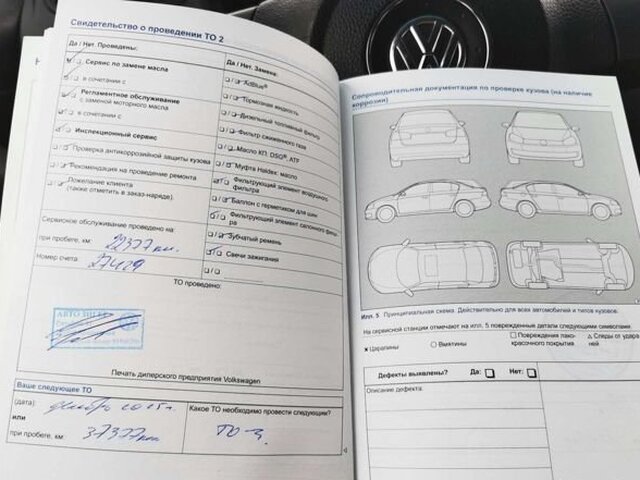 Свидетельство о проведении ТО 2
Да / Нет. Проведены:
Сервис по замене масла
в сочетании с
Регламентное обслуживание
с заменой моторного масла
в сочетании с
Инспекционный сервис
Проверка антикоррозийной защиты кузова
Рекомендация на проведение ремонта
Пожелание клиента
(также отметить в заказ-наряде).
Сервисное обслуживание проведено на:
при пробеге, км: 22377 км.
Номер счета:
Да / Нет. Замена:
AdBlue®
Тормозная жидкость
Дизельный топливный фильтр
Фильтр сжиженного газа
Масло КП: DSG®, ATF
Муфта Haldex: масло
Фильтрующий элемент воздушного
фильтра
Баллон с герметиком для шин
Фильтрующий элемент салонного фильт-
ра
Зубчатый ремень
Свечи зажигания
ТО проведено:
Печать дилерского предприятия Volkswagen
Ваше следующее ТО
(дата):
или
при пробеге, км: 37377 км.
Какое ТО необходимо провести следующим?
ТО-3
Сопроводительная документация по проверке кузова (на наличие
коррозии)
Илл. 5 Принципиальная схема. Действительно для всех автомобилей и типов кузовов.
На сервисной станции отмечают на илл. 5 поврежденные детали следующими символами:
x Царапины
○ Вмятины
□ Повреждения лако-
красочного покрытия
△ Следы от удара
ней
Дефекты выявлены? Да: Нет:
Описание дефекта: